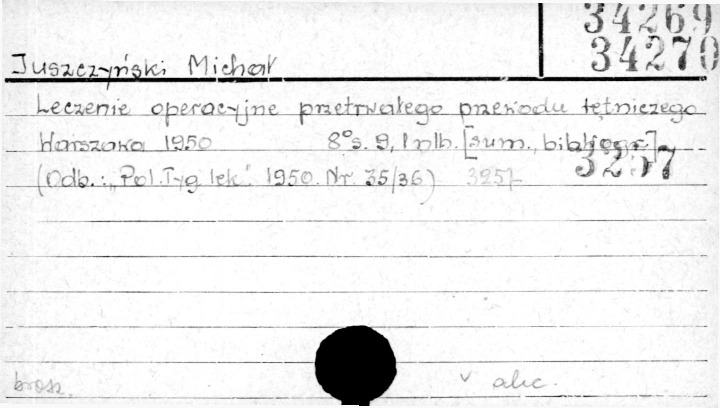 34269
34270
Juszczyński Michał
Leczenie operacyjne przetrwałego przewodu tętniczego
Warszawa 1950 8° s. 9, 1 nlb. [sum., bibliogr.]
3257
(Odb.: „Pol. Tyg. lek." 1950. Nr. 35/36) 3257
brosz. v akc.